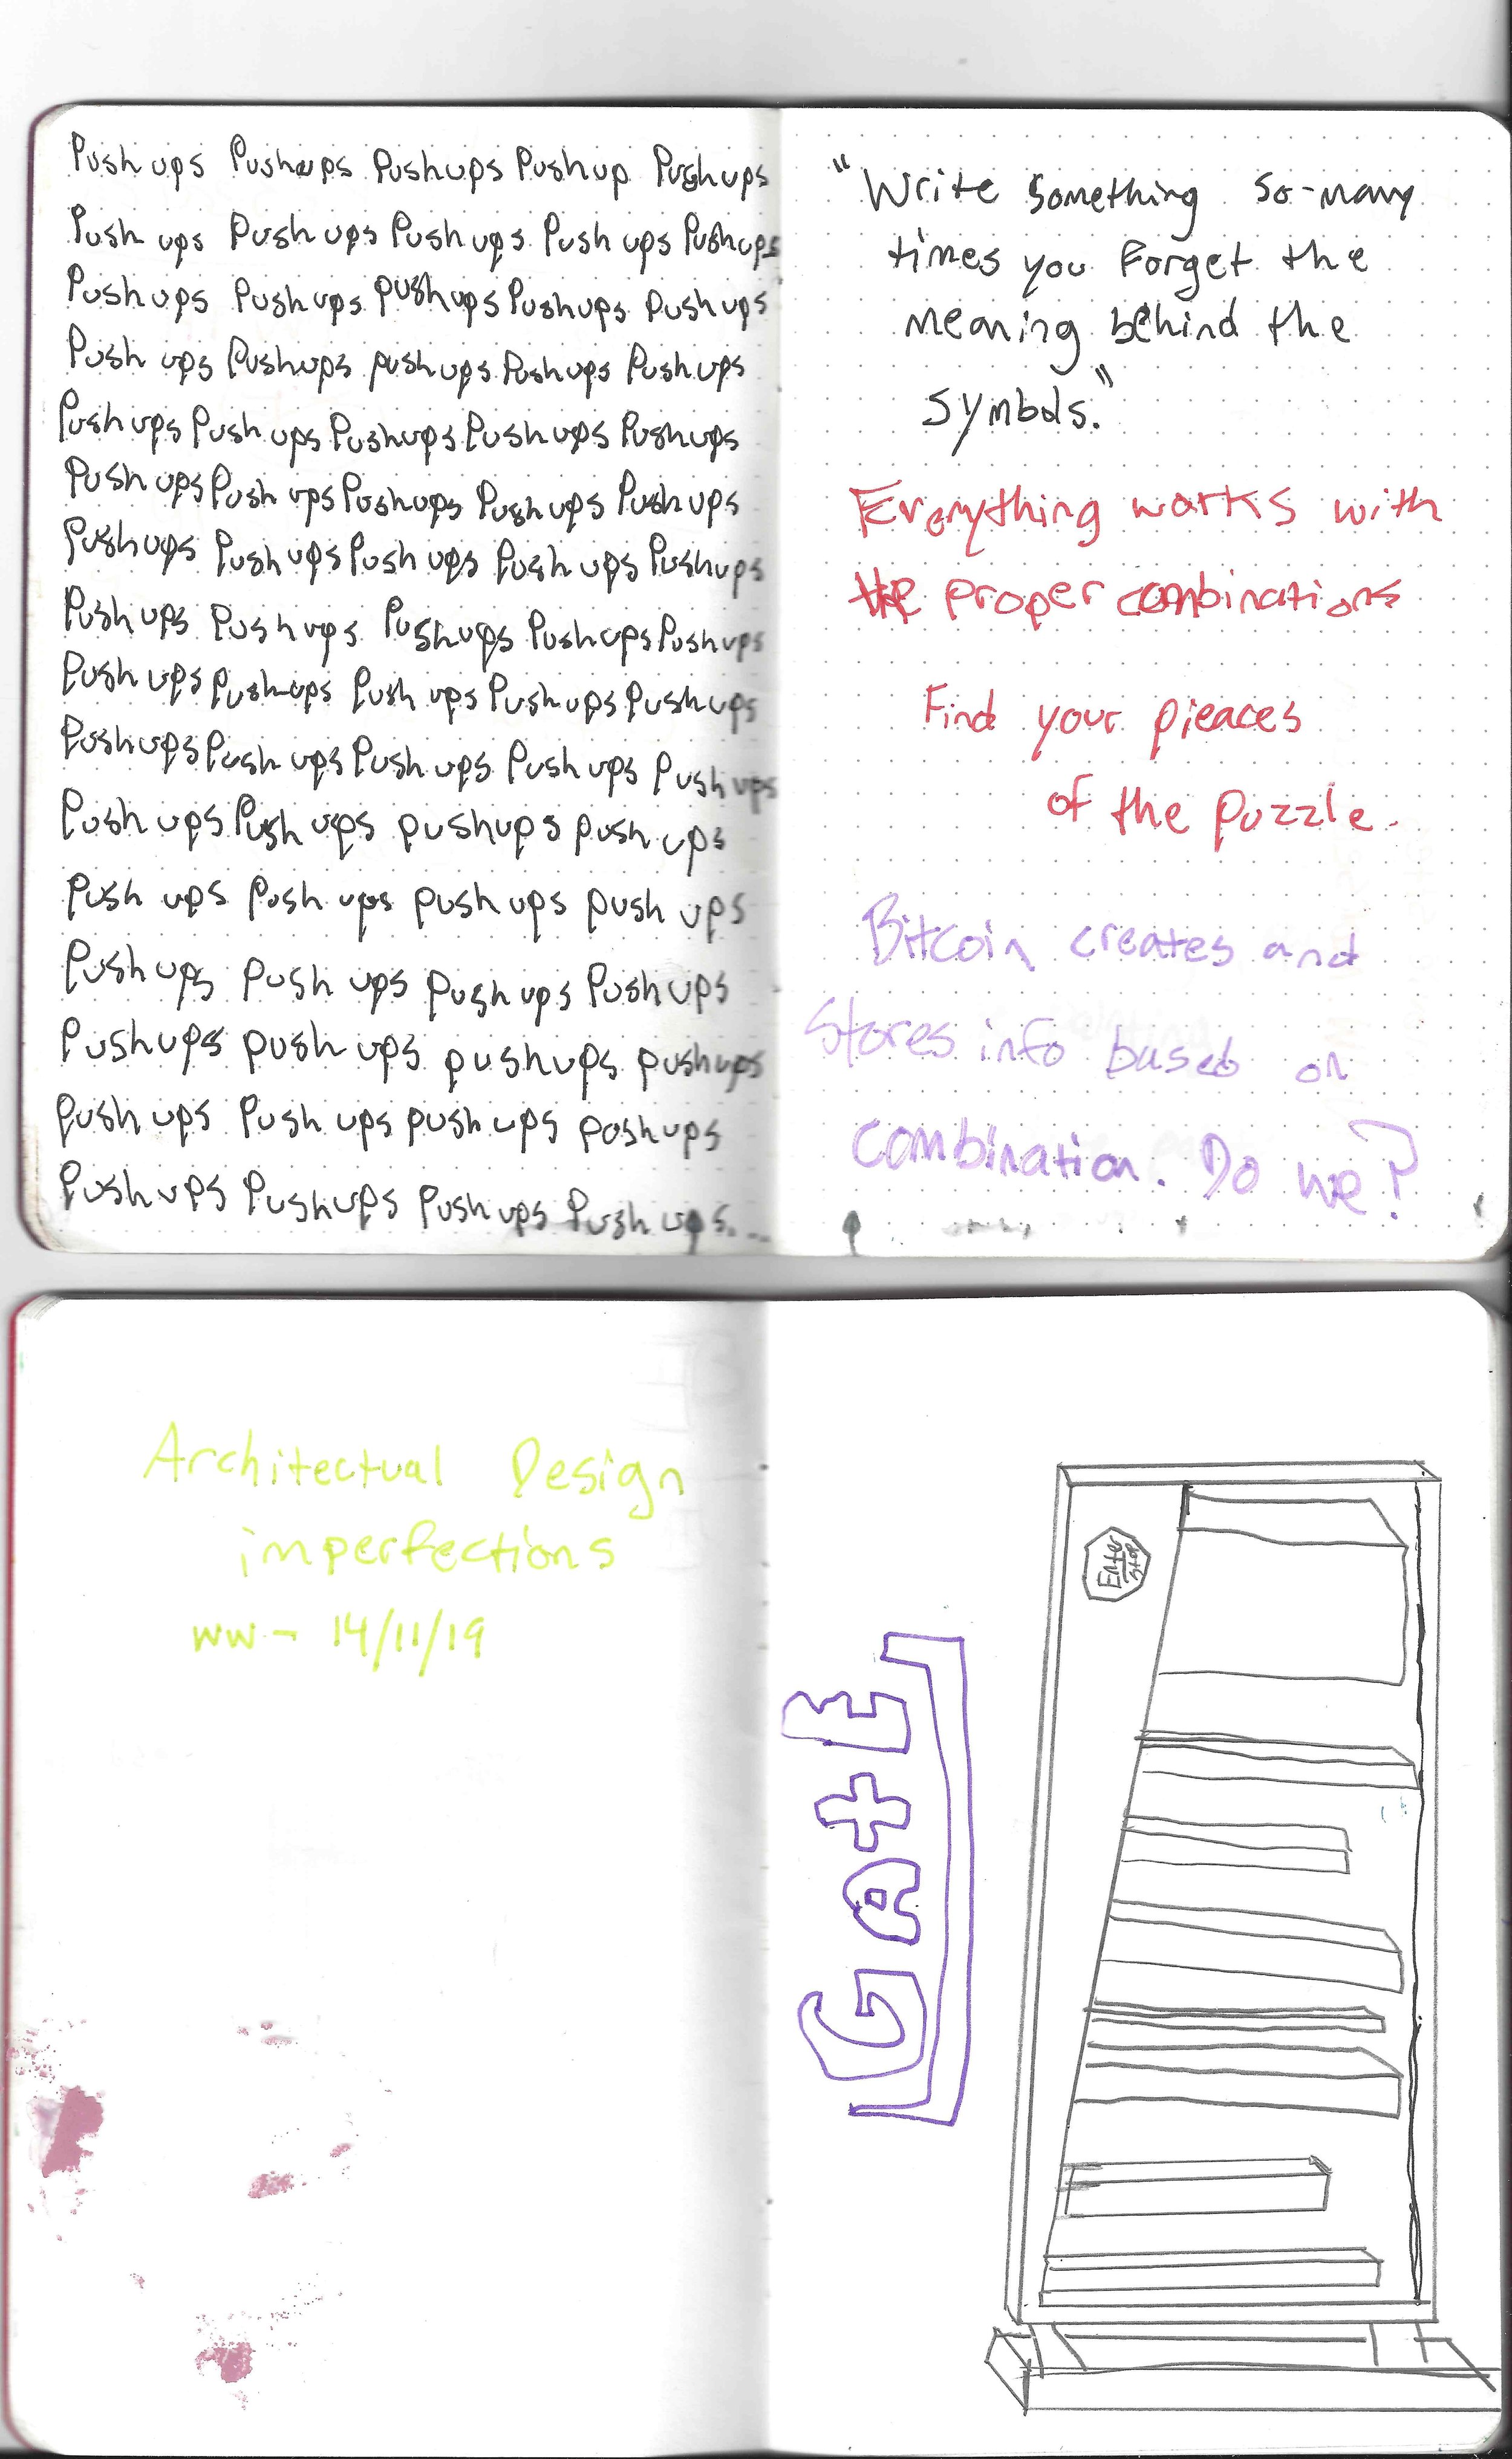 Push ups Pushups Pushups Pushup Pushups
Push ups Push ups Push ups Push ups Pushups
Pushups Pushups pushups Pushups Pushups
Push ups Pushups pushups Pushups Pushups
Pushups Push ups Pushups Pushups Pushups
Push ups Push ups Pushups Pushups Pushups
Pushups Push ups Push ups Push ups Pushups
Pushups Push ups Pushups Pushups Pushups
Push ups pushups Push ups Pushups Pushups
Pushups Push ups Push ups Push ups Push ups
Push ups Push ups pushups push ups
Push ups Push ups push ups push ups
Pushups Push ups Pushups Pushups
Pushups push ups pushups pushups
push ups Push ups push ups poshups
Pushups Pushups Pushups Push ups...
"Write something so-many
times you Forget the
meaning behind the
symbols."
Everything works with
the proper combinations
Find your pieaces
of the puzzle.
Bitcoin creates and
Stores info based on
combination. Do we?
Architectual Design
imperfections
WW - 14/11/19
GatE
Enter
Stop